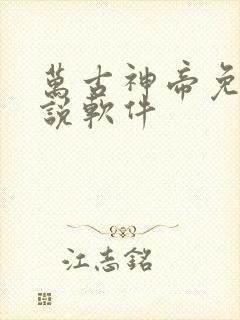 萬古神帝免
說軟件
江志銘